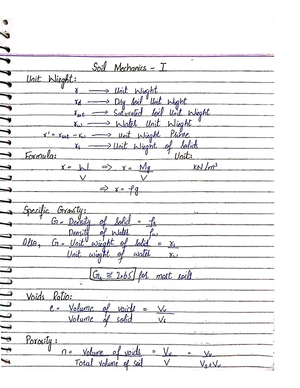 Soil Mechanics - I
Unit Wieght:
γ ⟶ Unit Wieght
γd ⟶ Dry Soil Unit Wght
γsat ⟶ Saturated Soil Unit Wieght
γw ⟶ Water Unit Wieght
γ' = γsat - γw ⟶ Unit Wieght Prime
γs ⟶ Unit Wieght of Solids
Formula: Unit:
γ = W/V ⇒ γ = Mg/V kN/m³
⇒ γ = ρg
Specific Gravity:
G = Density of Solid / Density of Water = ρs/ρw
Also, G = Unit wieght of solid / Unit wieght of water = γs/γw
Gs ≅ 2.65 for most soils
Voids Ratio:
e = Volume of voids / Volume of solid = Vv/Vs
Porosity:
n = Volume of voids / Total volume of soil = Vv/V = Vv/Vs+Vv